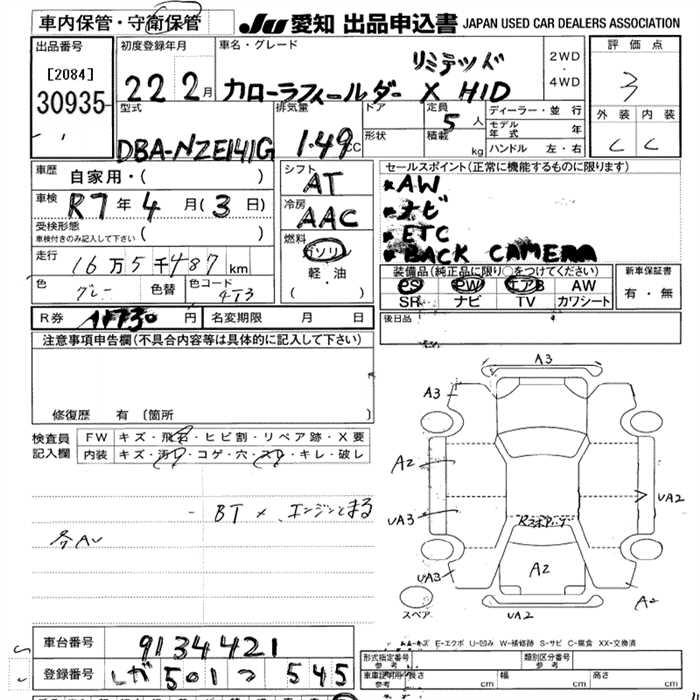 車内保管・守衛保管 JU 愛知 出品申込書 JAPAN USED CAR DEALERS ASSOCIATION
出品番号 初度登録年月 車名・グレード 2WD・4WD 評価点
[2084] 22 2月 カローラフィールダー X HID リミテッド 3
30935
型式 排気量 ドア 定員 5人 ディーラー・並行 外装 内装
DBA-NZE141G 1.49CC 形状 積載 kg モデル年式 年 C C
ハンドル 左・右
車歴 自家用・( ) シフト AT セールスポイント(正常に機能するものに限ります)
車検 R7年4月(3日) 冷房 AAC AW
受検形態 ( ) ナビ
車検付きのみ記入して下さい 燃料 ガソリン ETC
走行 16万5千487km 軽・油 BACK CAMERA
色 グレー 色替 色コード 4T3 ( )
装備品(純正品に限り○をつけてください) 新車保証書
PS PW エアB AW 有・無
SR ナビ TV カワシート
R券 円 名変期限 月 日 後日品
注意事項申告欄(不具合内容等は具体的に記入して下さい)
修復歴 有(箇所 )
検査員記入欄 FW キズ・飛石・ヒビ割・リペア跡・X要
内装 キズ・汚れ・コゲ・穴・スレ・キレ・破し
BT×、エンジン止まる
各AU
A3
A3
A2
UA2
UA3
A2
UA3 A2
スペア UA2
A-キズ E-エクボ U-凹み W-補修跡 S-サビ C-腐食 XX-交換済
車台番号 9134421 形式指定番号 参考 類別区分番号 参考
登録番号 501 つ 545 車車証明用 参考 長さ cm 幅 cm 高さ cm